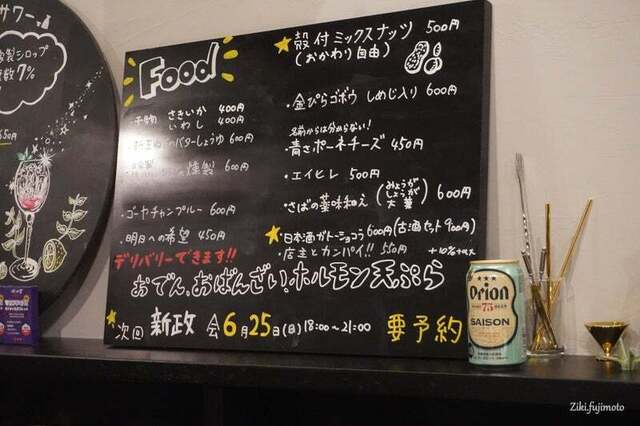 サワー
製シロップ
数7%
Food
★殻付ミックスナッツ 500円
(おかわり自由)
・干物 さきいか 400円
いわし 400円
バターしょうゆ 600円
燻製 600円
・ゴーヤチャンプルー 600円
・明日への希望 450円
・金ぴらゴボウ しめじ入り 600円
名前からは分からない!
青さボーネチーズ 450円
・エイヒレ 500円
・さばの薬味和え (みょうが しょうが 大葉) 600円
★日本酒ガトーショコラ 600円 (古酒セット 900円)
・店主とカンパイ!! 550円
+10%tax
デリバリーできます!!
おでん、おばんざい、ホルモン天ぷら
★次回 新政会 6月25日(日) 18:00〜21:00 要予約
Orion
75
SAISON
Ziki.fujimoto